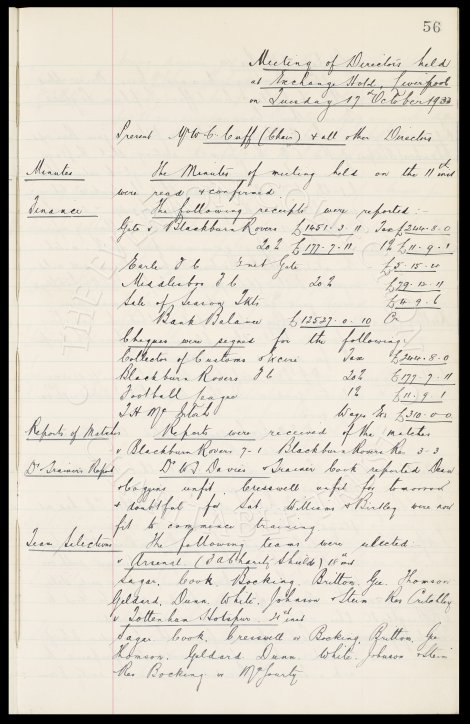 56
Meeting of Directors held
at Exchange Hotel, Liverpool
on Tuesday 17th October 1933
Present Mr W.C. Cuff (Chair) & all other Directors
Minutes The Minutes of meeting held on the 11th inst
were read & confirmed.
Finance The following receipts were reported:-
Gate v Blackburn Rovers £1451. 3. 11 Tax £244. 8. 0
20% £177. 7. 11 1% £11. 9. 1
Earle F C Gate £5. 15. 4
Middlesbro F C 20% £79. 12. 11
Sale of Season Tkts £4. 9. 6
Bank Balance £12527. 0. 10 Cr
Cheques were signed for the following:
Collector of Customs & Excise Tax £244. 8. 0
Blackburn Rovers F C 20% £177. 7. 11
Football League 1% £11. 9. 1
T.H. McIntosh Wages &c £310. 0. 0
Reports of Matches Reports were received of the matches
v Blackburn Rovers 7-1 Blackburn Rovers Res 3-3
Dr & Trainer's Report Dr W.J. Davies & Trainer Cook reported Dean
& Coggins unfit. Cresswell unfit for tomorrow
& doubtful for Sat. Williams & Birtley were now
fit to commence training.
Team Selections The following teams were selected:-
v Arsenal (F.A. Charity Shield) 18th inst
Sagar, Cook, Bocking, Britton, Gee, Thomson
Geldard, Dunn, White, Johnson & Stein Res Critchley
v Tottenham Hotspur. 21st inst
Sagar, Cook, Cresswell or Bocking, Britton, Gee
Thomson, Geldard, Dunn, White, Johnson & Stein
Res Bocking or McGourty.